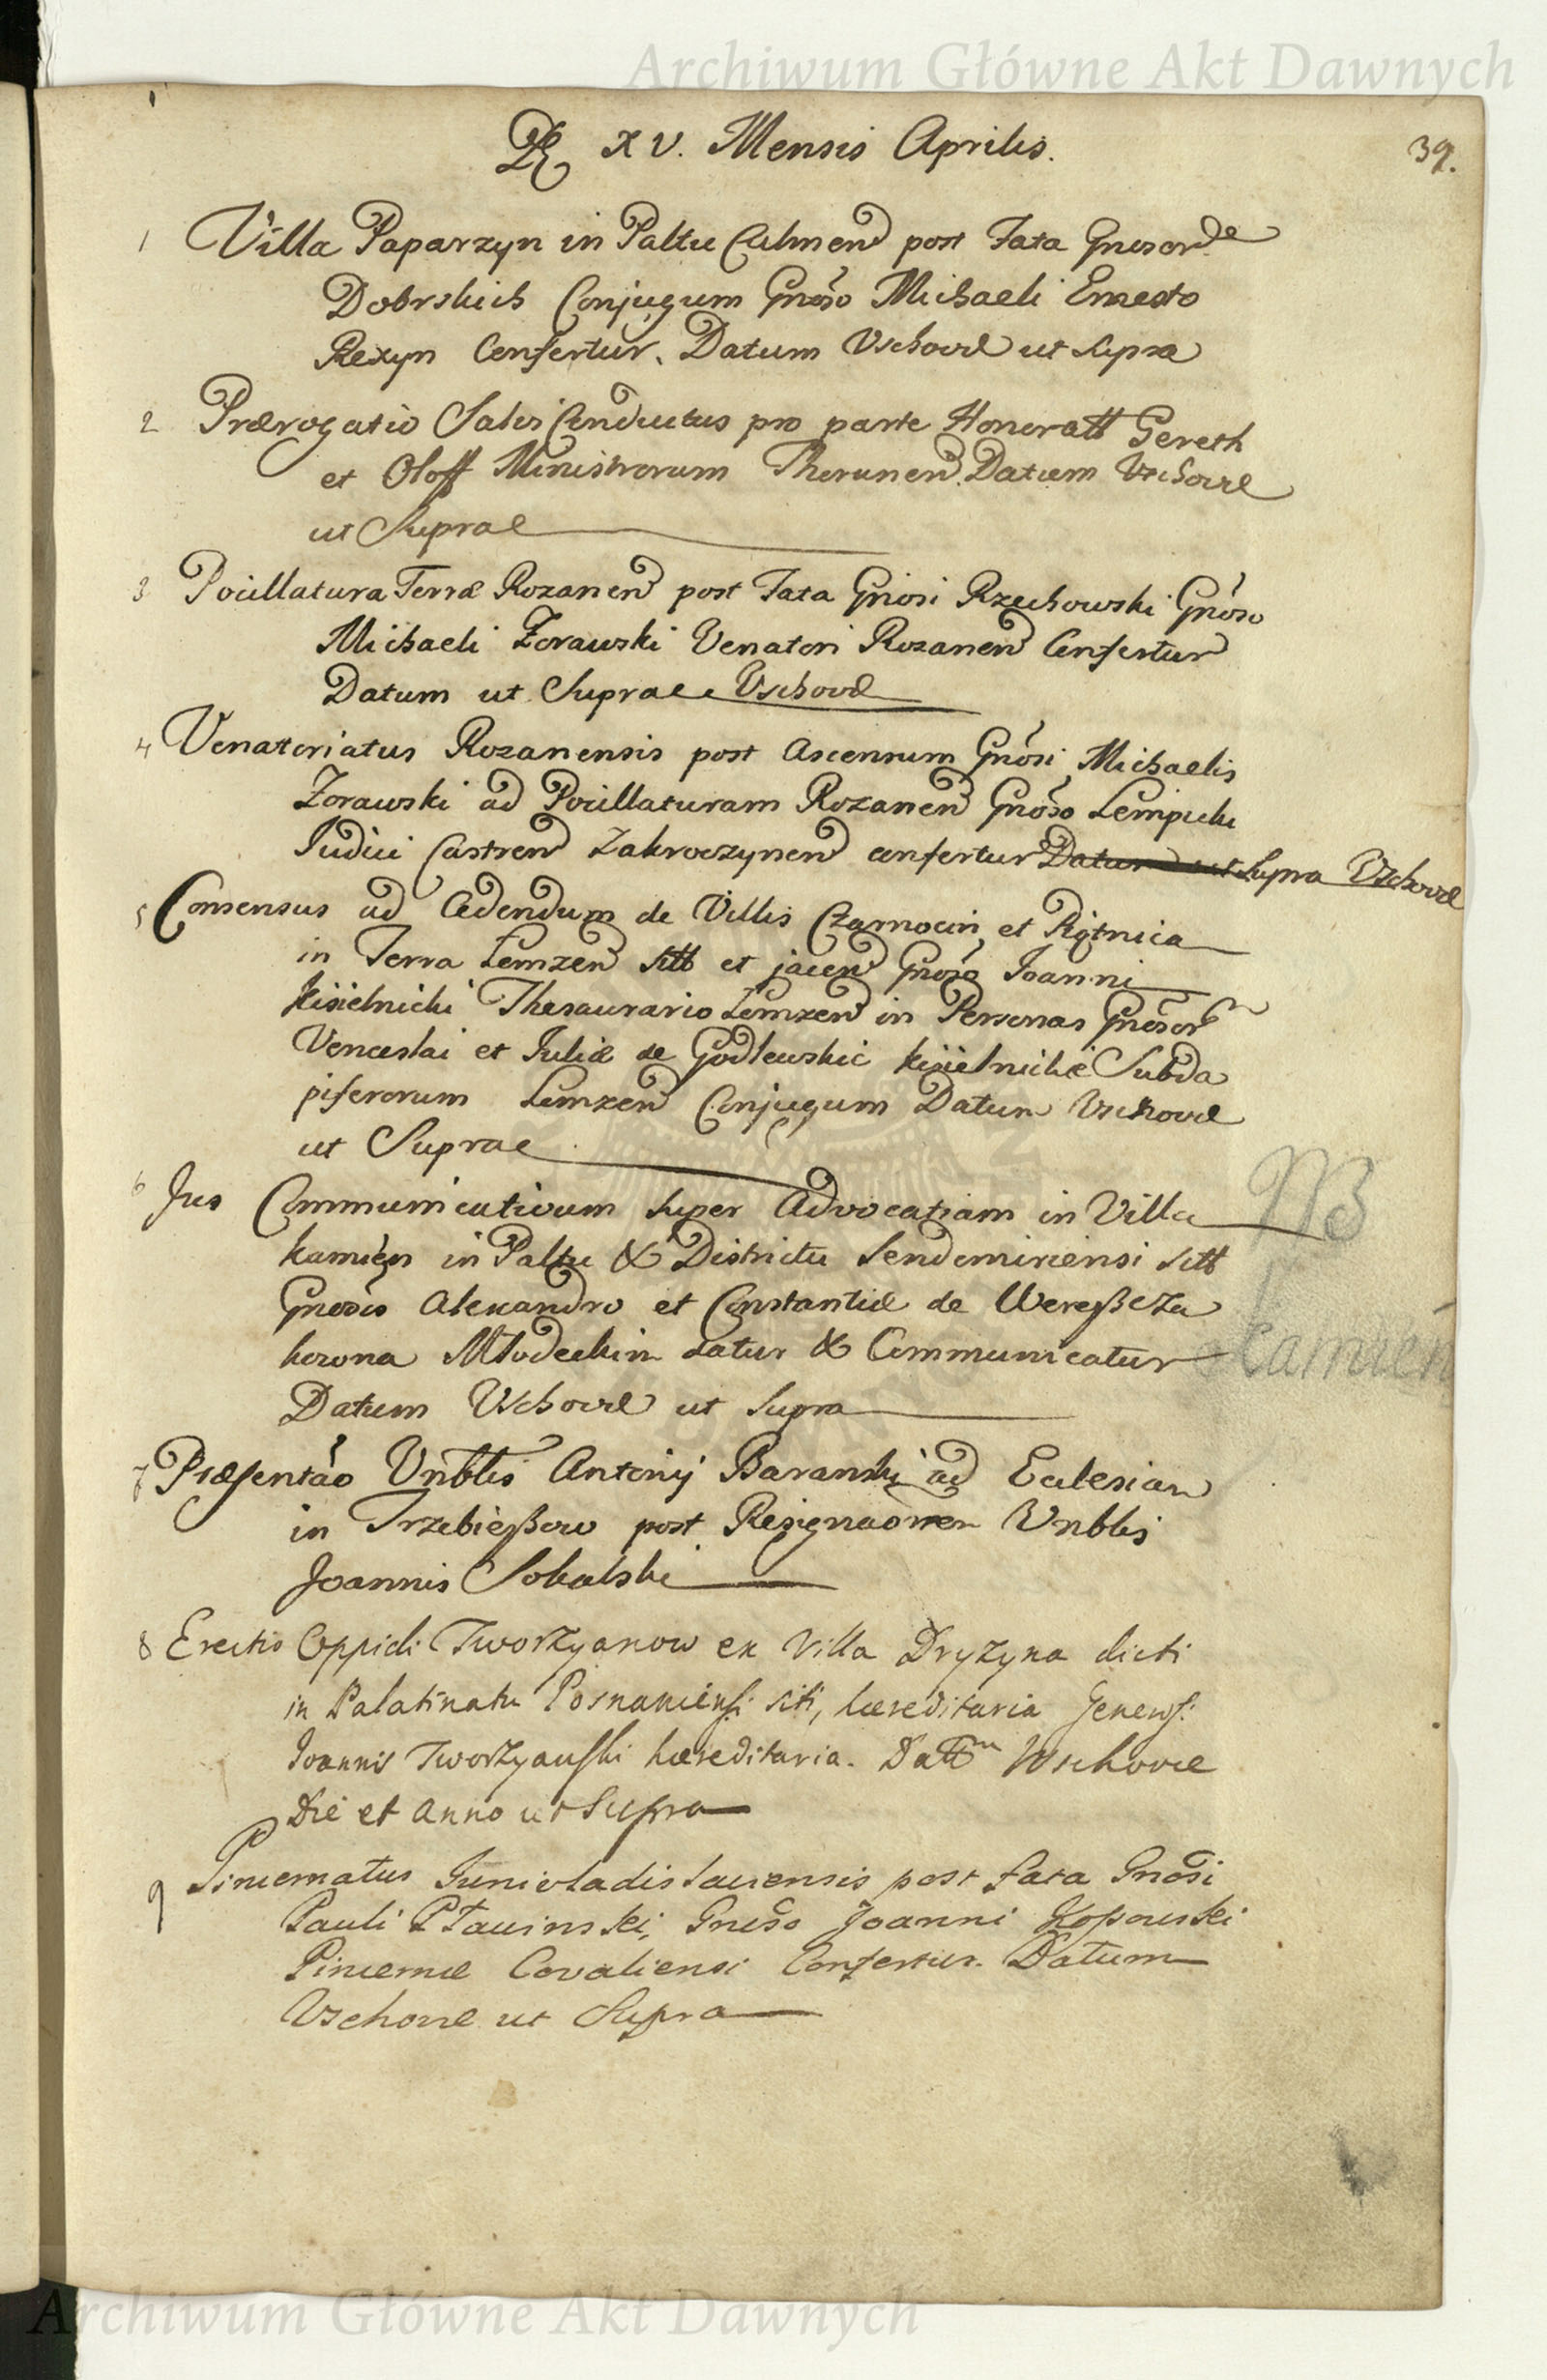 Archiwum Główne Akt Dawnych
39.
XV. Mensis Aprilis.
1 Villa Paparzyn in Paltu Culmen post Fata Gnosor
Dobrskich Conjugum Gnoso Michaeli Ernesto
Rexyn Confertur. Datum Vschovæ ut Supra
2 Prærogatio Salvi Conductus pro parte Honoratt Gereth
et Oloff Ministrorum Thorunen Datum Vschovæ
ut Supra
3 Pocillatura Terræ Rozanen post Fata Gnosi Rzechowski Gnoso
Michaeli Zorawski Venatori Rozanen Confertur
Datum ut Supra Vschovæ
4 Venatoriatus Rozanensis post Ascensum Gnosi Michaelis
Zorawski ad Pocillaturam Rozanen Gnoso Lempicki
Iudici Castren Zakroczynen confertur Datum ut Supra Vschovæ
5 Consensus ad Cedendum de Villis Czarnocin et
in Terra Lomzen sitt et jacen Gnoso Joanni
Kisielnicki Thesaurario Lomzen in Personas Gnosor
Venceslai et Juliæ de Godlewskie Kisielnickie Subda
piferorum Lomzen Conjugum Datum Vschovæ
ut Supra
6 Jus Communicativum super Advocatiam in Villa
Kamien in Paltu & Districtu Sendomiriensi sitt
Gnosis Alexandro et Constantiæ de Wereßcza
kowna Młodeckim datur & Communicatur
Datum Vschovæ ut Supra
NB
Kamień
7 Præsentao Vnblis Antonij Baranski ad Ecclesiam
in Trzebießow post Resignaonem Vnblis
Joannis Sokalski
8 Erectio Oppidi Tworzyanow ex Villa Dryzyna dicti
in Palatinatu Posnaniensi siti, hæreditaria Generosi
Joannis Tworzyanski hæreditaria. Datt Wschovæ
Die et Anno ut Supra
9 Pincernatus Junivladislaviensis post fata Gnosi
Pauli Gnoso Joanni
Pincernæ Covaliensi Confertur. Datum
Vschovæ ut Supra
Archiwum Główne Akt Dawnych